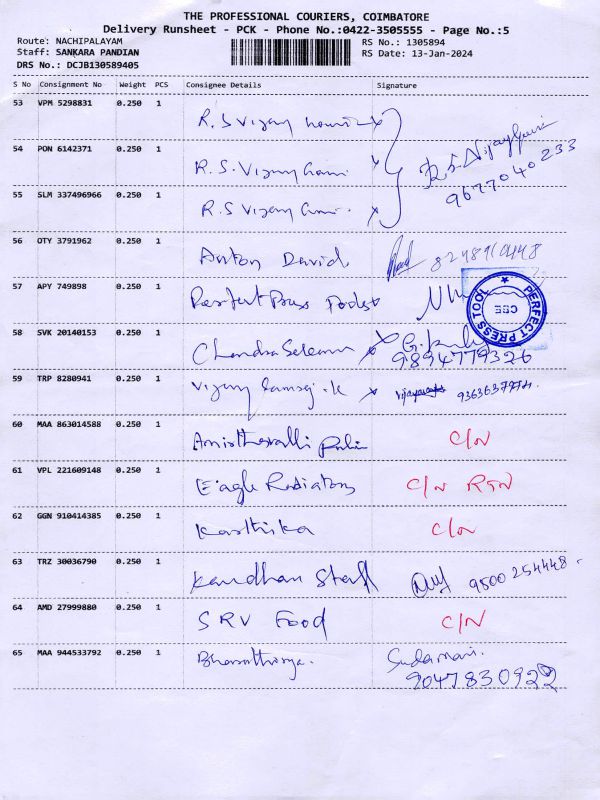 THE PROFESSIONAL COURIERS, COIMBATORE
Delivery Runsheet - PCK - Phone No.:0422-3505555 - Page No.:5
Route: NACHIPALAYAM RS No.: 1305894
Staff: SANKARA PANDIAN RS Date: 13-Jan-2024
DRS No.: DCJB130589405
S No Consignment No Weight PCS Consignee Details Signature
53 VPM 5298831 0.250 1 R.S Vijay
54 PON 6142371 0.250 1 R.S. Vijay R.S.Vijay
9677040233
55 SLM 337496966 0.250 1 R.S Vijay
56 OTY 3791962 0.250 1 Anton David
57 APY 749898 0.250 1 Perfect Press Tools
PERFECT PRESS TOOL
CBE
58 SVK 20140153 0.250 1 G.
9894779326
59 TRP 8280941 0.250 1 Vijay
60 MAA 863014588 0.250 1 C/N
61 VPL 221609148 0.250 1 Eagle Radiators C/N RTN
62 GGN 910414385 0.250 1 Karthika C/N
63 TRZ 30036790 0.250 1 Kandhan Staff 9500254448
64 AMD 27999880 0.250 1 SRV Food C/N
65 MAA 944533792 0.250 1
9047830922